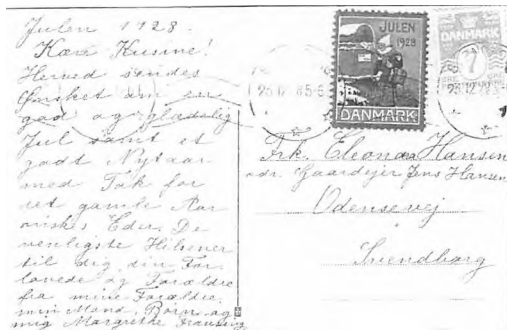 Julen 1928.
Kære Kusine!
Herved sendes
Ønsket om en
god og glædelig
Jul samt et
godt Nytaar
med Tak for
det gamle Aar
ønskes Eder. De
venligste Hilsener
til dig, din For
lovede og Forældre
fra mine Forældre,
min Mand, Børn og
mig Margrethe
JULEN
1928
DANMARK
DANMARK
7
Frk. Eleonora Hansen
adr. Gaardejer Jens Hansen
Odensevej
Svendborg